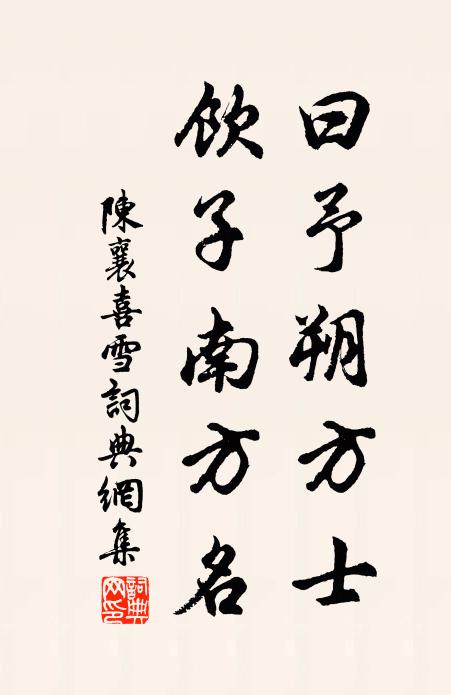 曰予朔方士
飲子南方名
陳襄喜雪詞典網集
詞典网印